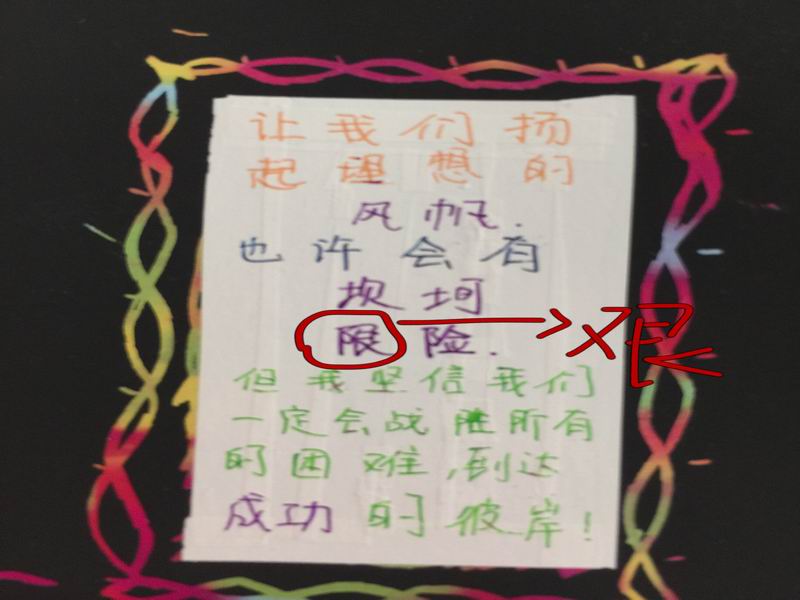 让我们扬
起理想的
风帆.
也许会有
坎坷
限险.
艰
但我坚信我们
一定会战胜所有
的困难,到达
成功的彼岸!